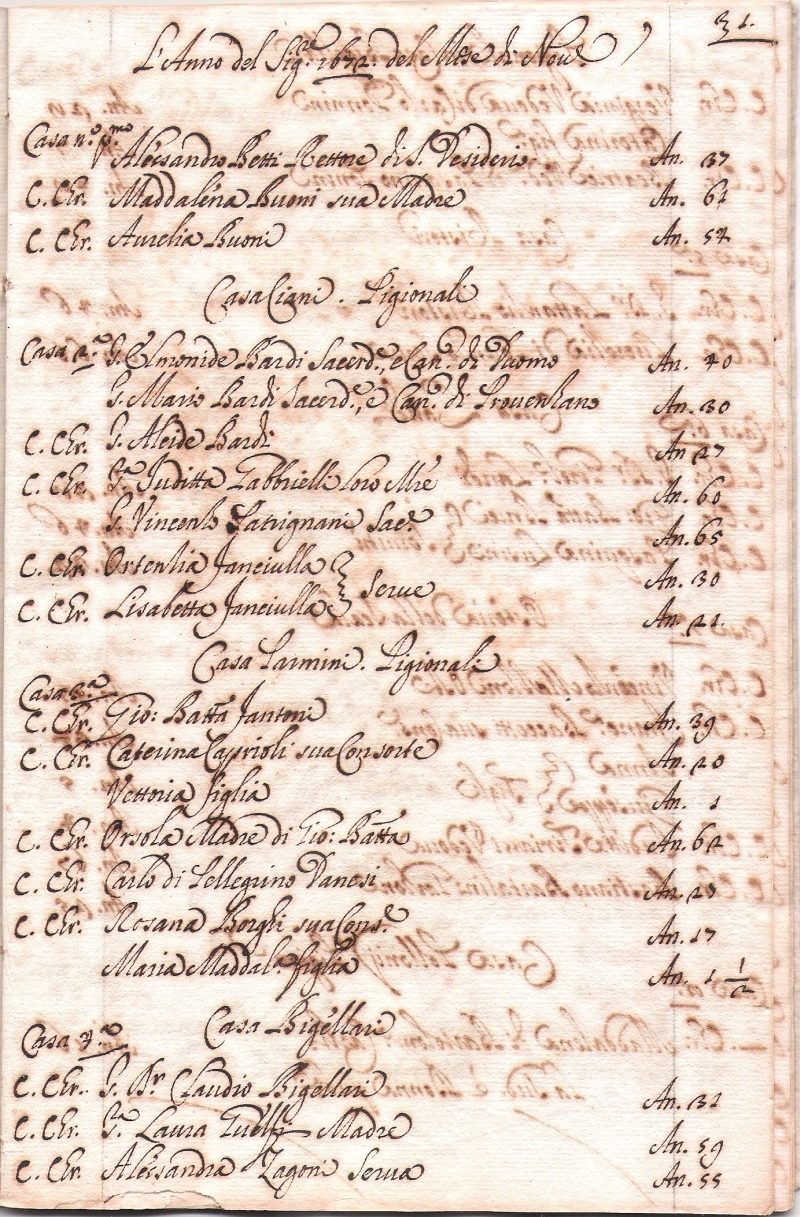 31.
L'Anno del Sig.re 1672. del Mese di Nov.e
Casa n.o p.mo Alessandro Betti Rettore di S. Desiderio An. 37
C. Chr. Maddalena Buoni sua Madre An. 62
C. Chr. Aurelia Buoni An. 52
Casa Ciani. Pigionali
Casa 2.a S. Elmonide Bardi Sacerd.e, e Can.o di Duomo An. 40
S. Mario Bardi Sacerd.e, e Can.o di Provenzano An. 30
C. Chr. S. Alcide Bardi An. 27
C. Chr. S.ra Juditta Gabbrielli loro Mre An. 60
S. Vincenzo Patrignani Sac.e An. 65
C. Chr. Ortenzia fanciulla An. 30
Serve
C. Chr. Lisabetta fanciulla An. 21
Casa Pannini. Pigionali
Casa 3.a
C. Chr. Gio: Batta Fantoni An. 39
C. Chr. Caterina Caprioli sua Consorte An. 20
Vettoria figlia An. 1
C. Chr. Orsola Madre di Gio: Batta An. 62
C. Chr. Carlo di Pellegrino Vanesi An. 23
C. Chr. Rosana Borghi sua Cons.e An. 17
Maria Maddal.a figlia An. 1 1/2
Casa 4.a Casa Bigellari
C. Chr. S. Dr Claudio Bigellari An. 31
C. Chr. S.ra Laura Guelfi Madre An. 59
C. Chr. Alessandra Zagoni Serva An. 55